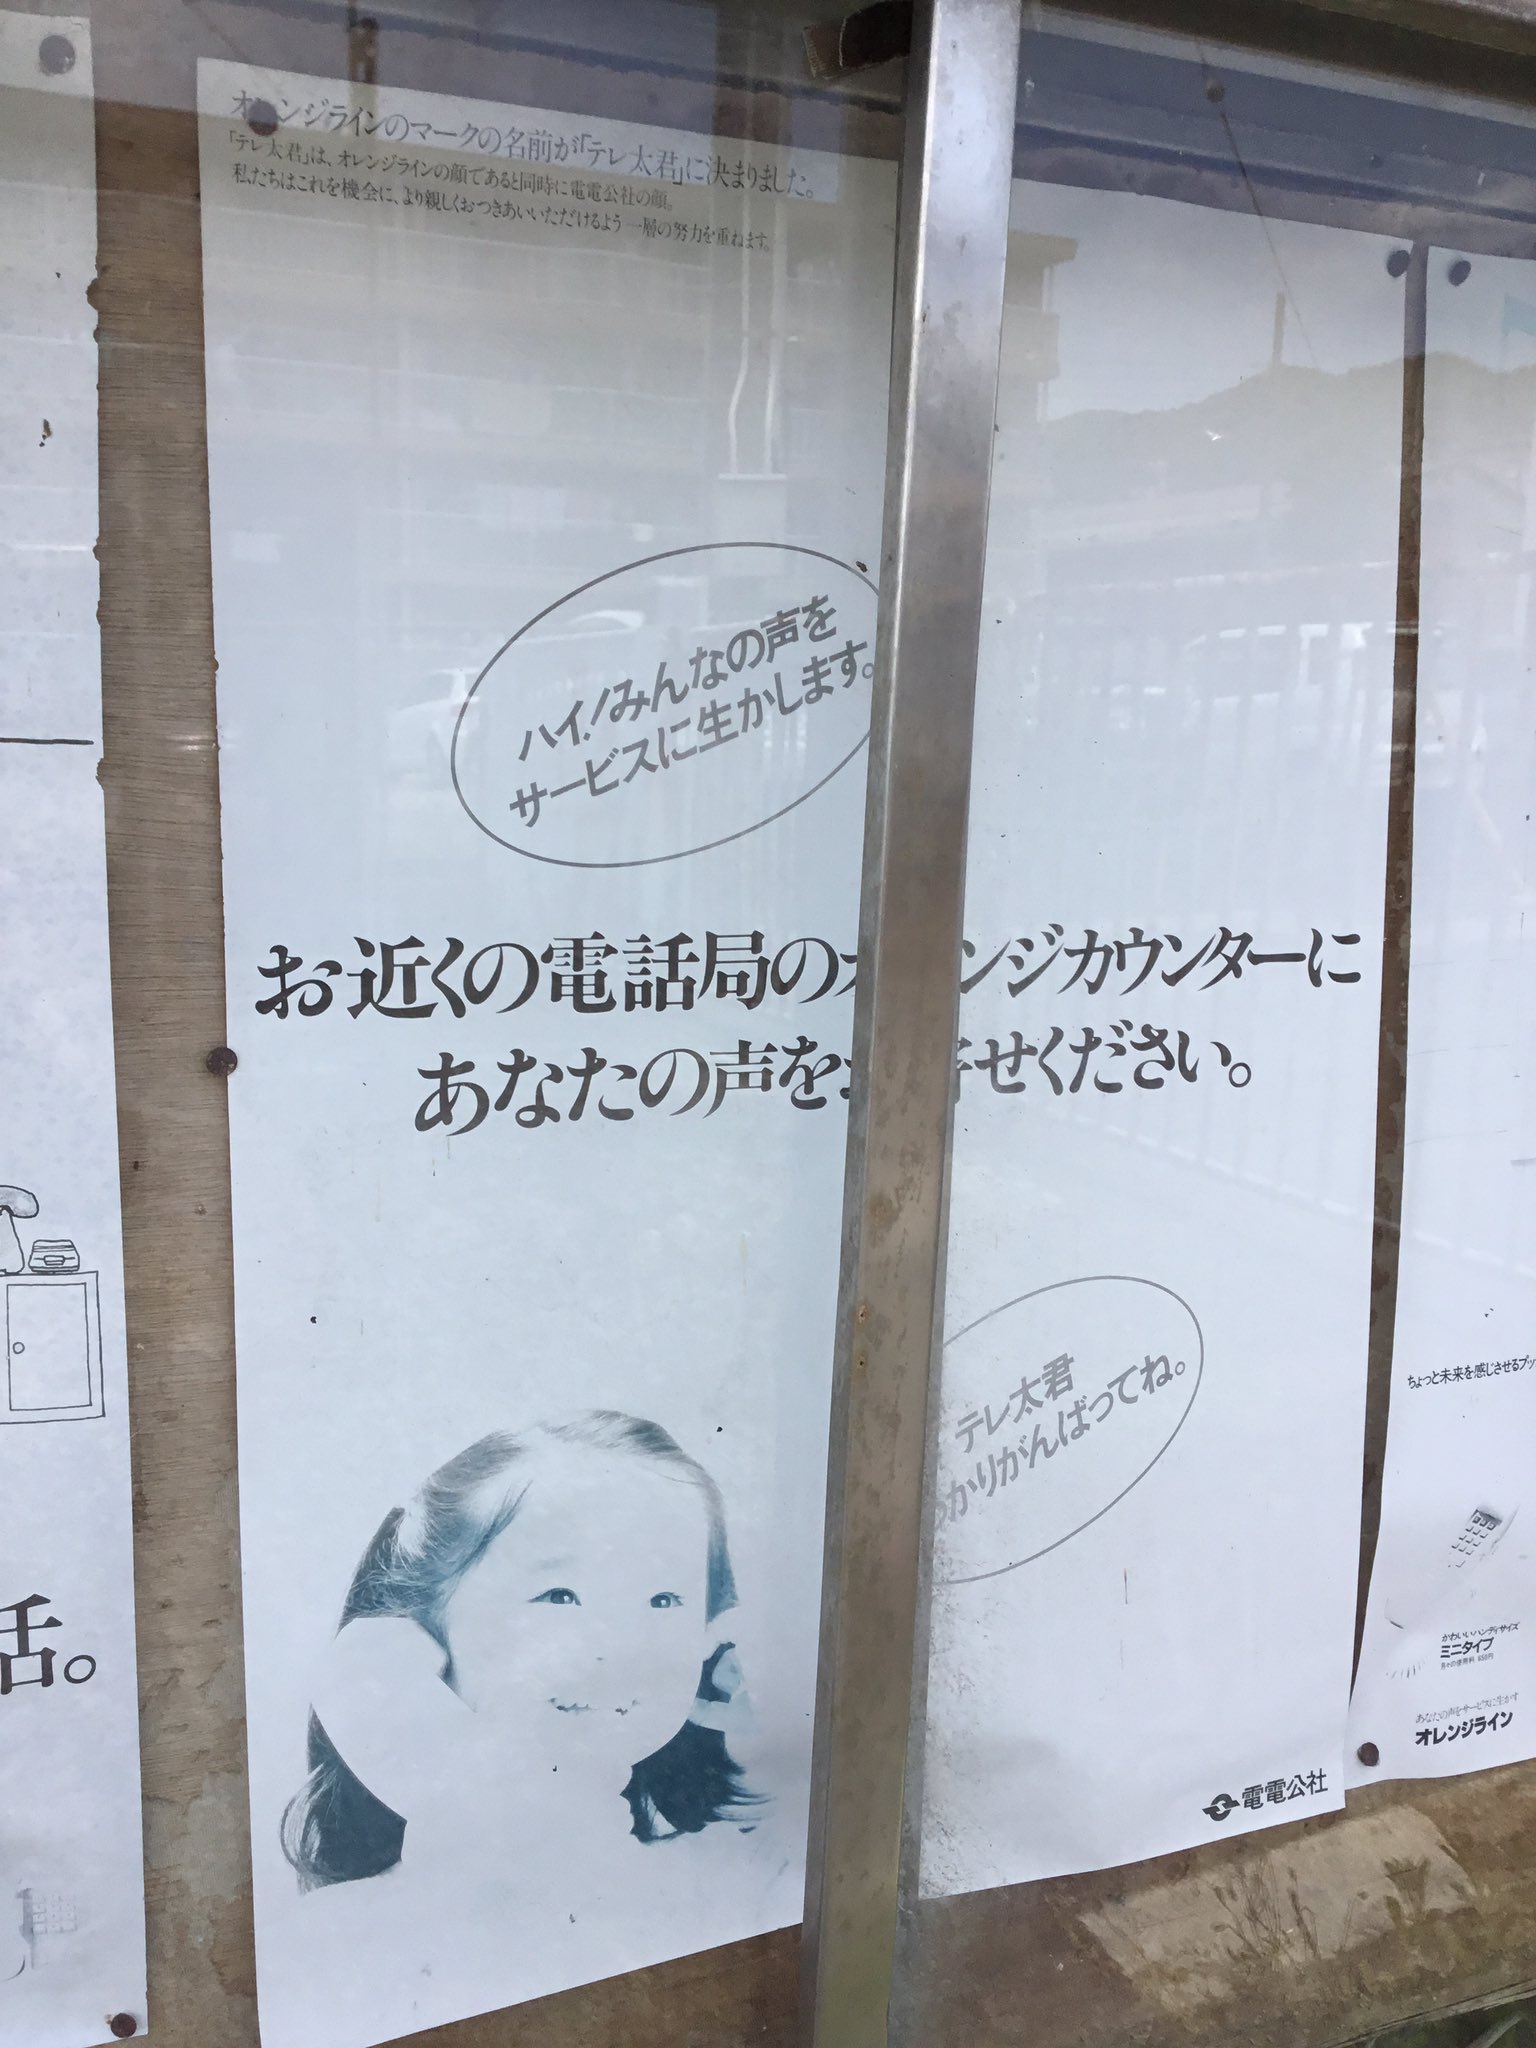 オレンジラインのマークの名前が「テレ太君」に決まりました。
「テレ太君」は、オレンジラインの顔であると同時に電電公社の顔。
私たちはこれを機会に、より親しくおつきあいいただけるよう一層の努力を重ねます。
ハイ!みんなの声を
サービスに生かします。
お近くの電話局のオレンジカウンターに
あなたの声をお寄せください。
テレ太君
かりがんばってね。
電電公社
活。
ちょっと未来を感じさせるプッ
かわいいハンディサイズ
ミニタイプ
あなたの声をサービスに生かす
オレンジライン